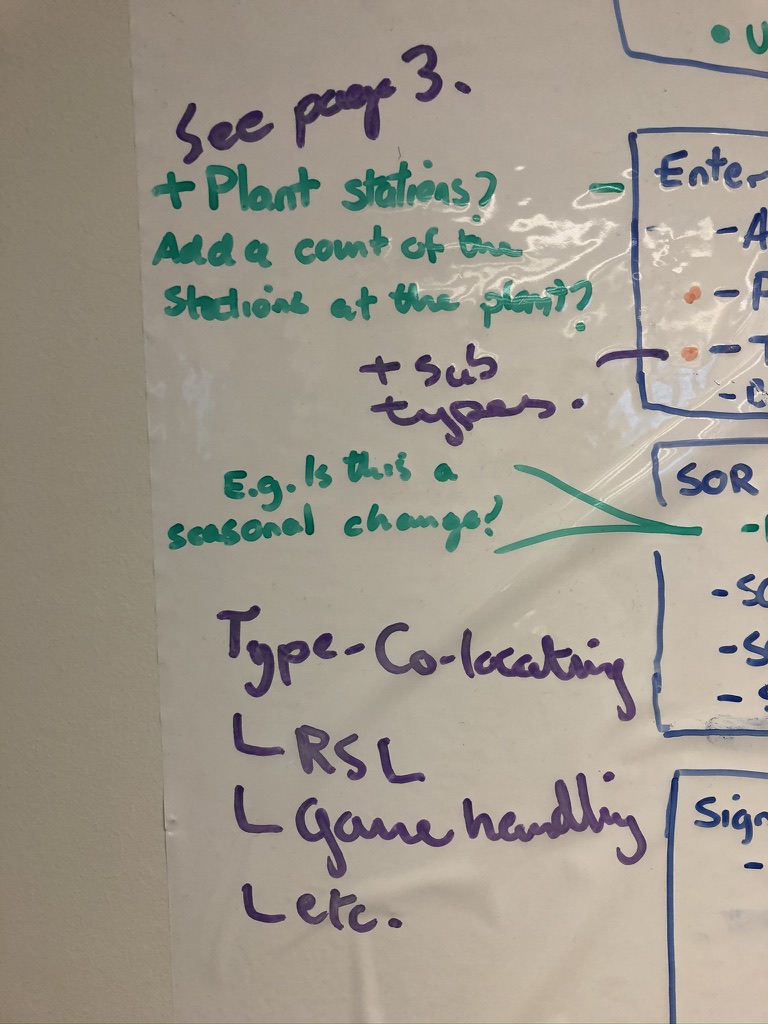 See page 3.
+ Plant stations?
Add a count of the
stations at the plant?
+ Sub
types.
E.g. Is this a
seasonal change?
Type - Co-locating
RSL
Game handling
etc.
Enter
- A
- P
- T
SOR
- SO
- So
- S
Sign
-